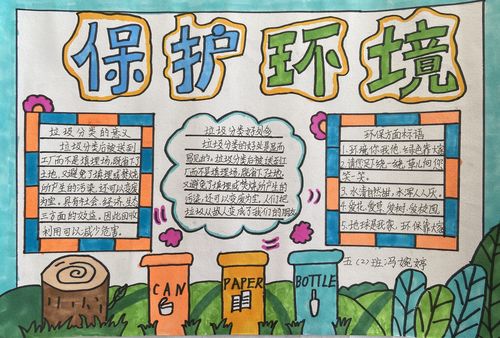 保护环境
垃圾分类的意义
垃圾分类后被送到
工厂而不是填埋场,既省下了
土地,又避免了填埋或焚烧
所产生的污染,还可以变废
为宝。具有社会、经济、生态
三方面的效益。因此回收
利用可以减少危害。
垃圾分类好处多
垃圾分类的好处是显而
易见的。垃圾分类后被送到工
厂而不是填埋场,既省下了土地,
又避免了填埋或焚烧所产生的
污染,还可以变废为宝。人们把
垃圾从敌人变成了我们的朋友
环保方面标语
1.环境你我他,绿色靠大家
笑一笑。
3.水清自然甜,水浑人人厌。
4.爱花、爱草、爱树、爱校园。
5.地球是我家,环保靠大家
五(2)班冯婉婷
CAN
PAPER
BOTTLE